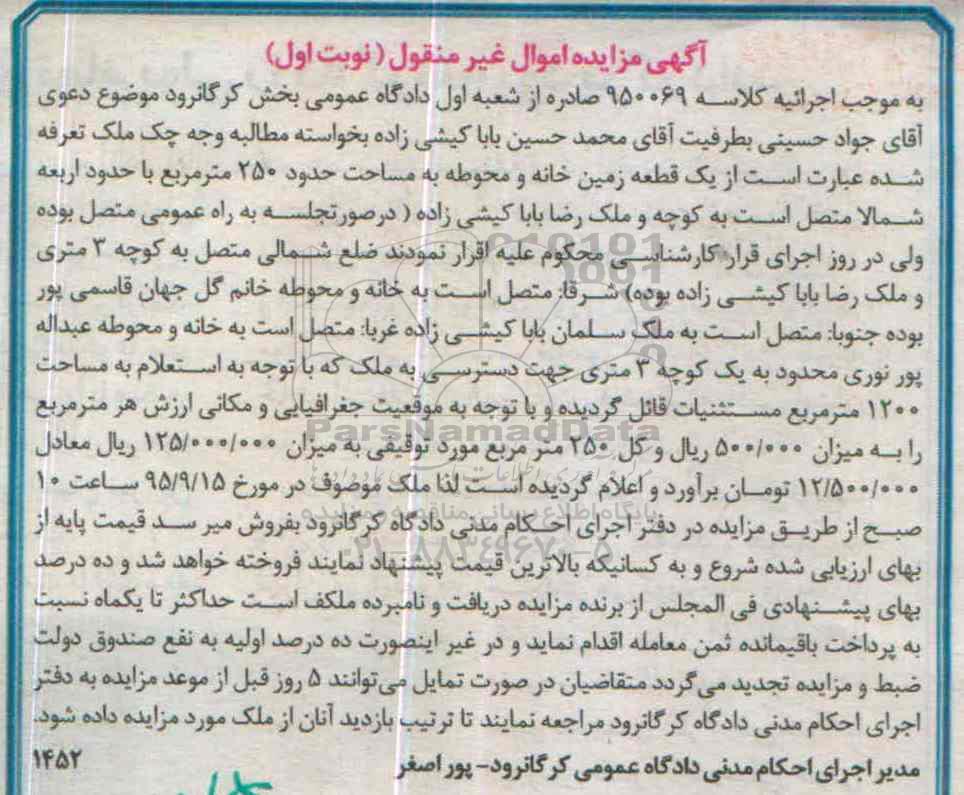 آگهی مزایده اموال غیر منقول ( نوبت اول)
به موجب اجرائیه کلاسه ۹۵۰۰۶۹ صادره از شعبه اول دادگاه عمومی بخش کرگانرود موضوع دعوی
آقای جواد حسینی بطرفیت آقای محمد حسین بابا کیشی زاده بخواسته مطالبه وجه چک ملک تعرفه
شده عبارت است از یک قطعه زمین خانه و محوطه به مساحت حدود ۲۵۰ مترمربع با حدود اربعه
شمالا متصل است به کوچه و ملک رضا بابا کیشی زاده ( درصورتجلسه به راه عمومی متصل بوده
ولی در روز اجرای قرار کارشناسی محکوم علیه اقرار نمودند ضلع شمالی متصل به کوچه ۳ متری
و ملک رضا بابا کیشی زاده بوده) شرقا: متصل است به خانه و محوطه خانم گل جهان قاسمی پور
بوده جنوبا: متصل است به ملک سلمان بابا کیشی زاده غربا: متصل است به خانه و محوطه عبداله
پور نوری محدود به یک کوچه ۳ متری جهت دسترسی به ملک که با توجه به استعلام به مساحت
۱۲۰۰ مترمربع مستثنیات قائل گردیده و با توجه به موقعیت جغرافیایی و مکانی ارزش هر مترمربع
را به میزان ۵۰۰/۰۰۰ ریال و کل ۲۵۰ متر مربع مورد توقیفی به میزان ۱۲۵/۰۰۰/۰۰۰ ریال معادل
۱۲/۵۰۰/۰۰۰ تومان برآورد و اعلام گردیده است لذا ملک موصوف در مورخ ۹۵/۹/۱۵ ساعت ۱۰
صبح از طریق مزایده در دفتر اجرای احکام مدنی دادگاه کرگانرود بفروش میر سد قیمت پایه از
بهای ارزیابی شده شروع و به کسانیکه بالاترین قیمت پیشنهاد نمایند فروخته خواهد شد و ده درصد
بهای پیشنهادی فی المجلس از برنده مزایده دریافت و نامبرده ملکف است حداکثر تا یکماه نسبت
به پرداخت باقیمانده ثمن معامله اقدام نماید و در غیر اینصورت ده درصد اولیه به نفع صندوق دولت
ضبط و مزایده تجدید می گردد متقاضیان در صورت تمایل می‌توانند ۵ روز قبل از موعد مزایده به دفتر
اجرای احکام مدنی دادگاه کرگانرود مراجعه نمایند تا ترتیب بازدید آنان از ملک مورد مزایده داده شود.
مدیر اجرای احکام مدنی دادگاه عمومی کرگانرود- پور اصغر ۱۴۵۲
ParsNamadData
پایگاه اطلاع رسانی مناقصه و مزایده
۰۲۱-۸۸۳۴۹۶۷۰-۵